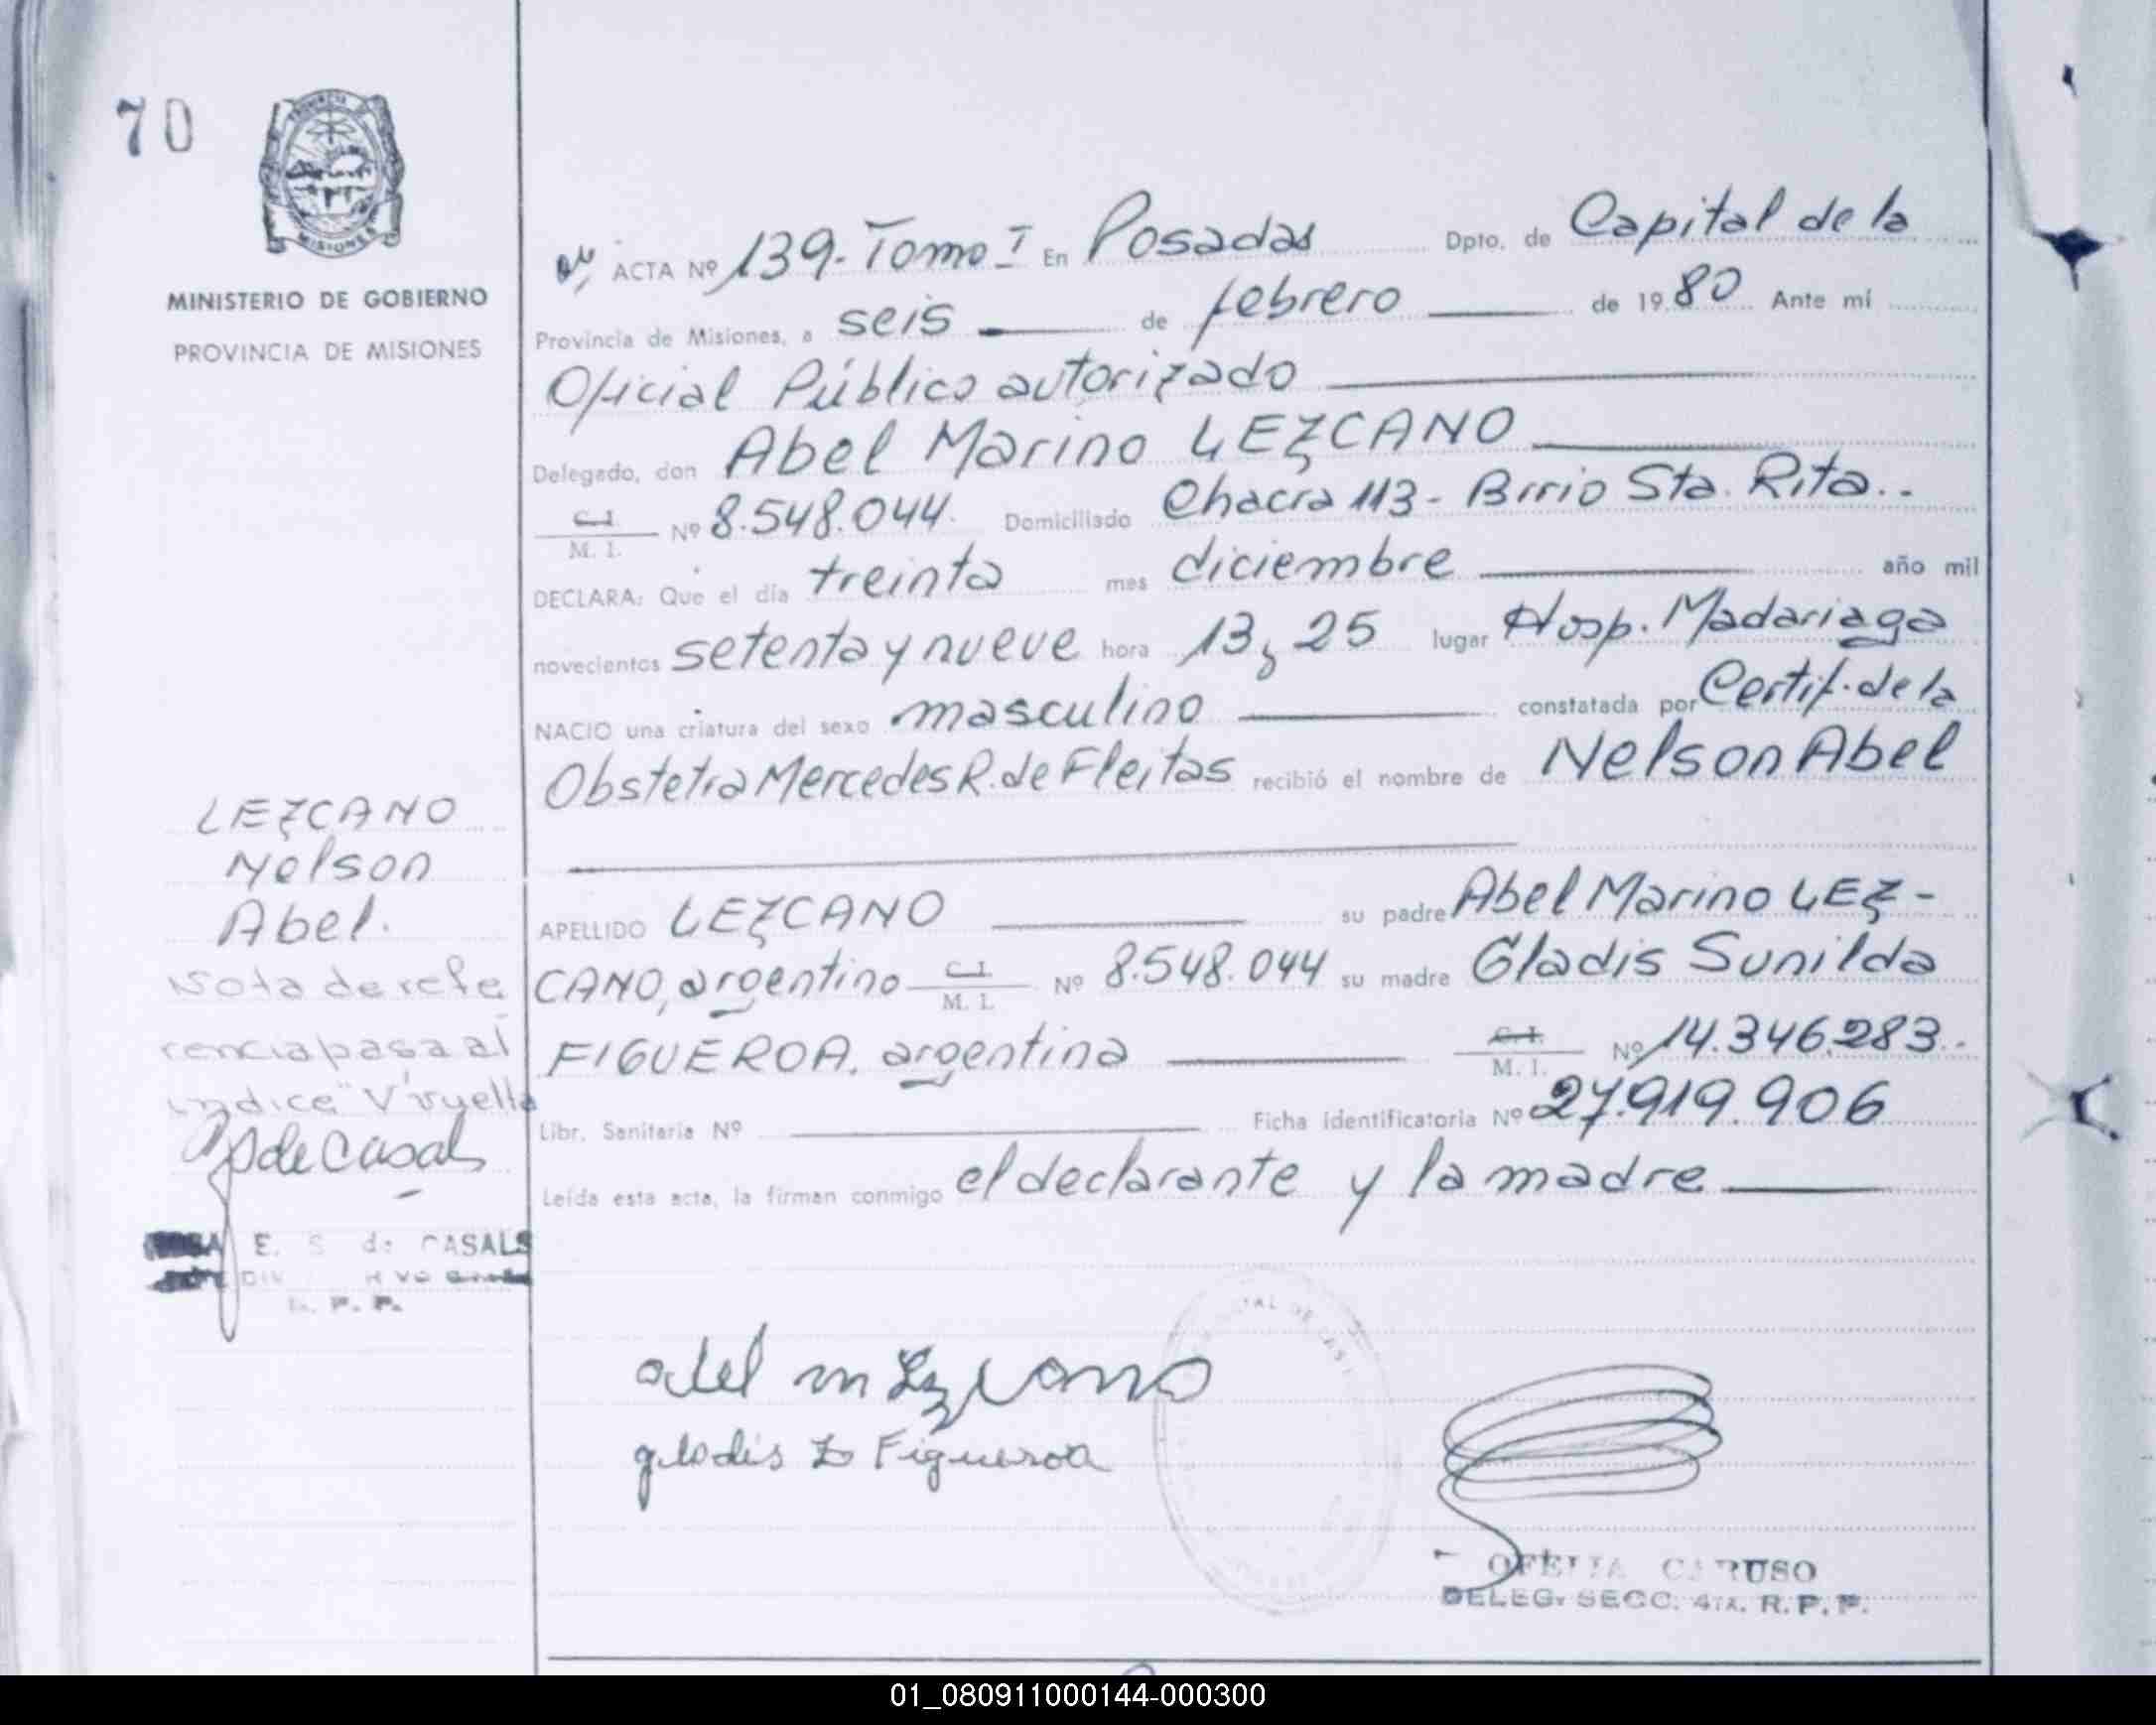 70
MISIONES
MINISTERIO DE GOBIERNO
PROVINCIA DE MISIONES
ACTA Nº 139-Tomo I En Posadas Dpto. de Capital de la
Provincia de Misiones, a seis de febrero de 1980 Ante mí
Oficial Público autorizado
Delegado, don Abel Marino LEZCANO
C.I. M. I. Nº 8.548.044. Domiciliado Chacra 113 - Brrio Sta. Rita..
DECLARA: Que el día treinta mes diciembre año mil
novecientos setenta y nueve hora 13,25 lugar Hosp. Madariaga
NACIO una criatura del sexo masculino constatada por Certif. de la
Obstetra Mercedes R. de Fleitas recibió el nombre de Nelson Abel
APELLIDO LEZCANO su padre Abel Marino LEZ-
CANO, argentino C.I. M. I. Nº 8.548.044 su madre Gladis Sunilda
FIGUEROA. argentina C.I. M. I. Nº 14.346.283.
Libr. Sanitaria Nº Ficha identificatoria Nº 27.919.906
Leída esta acta, la firman conmigo el declarante y la madre
LEZCANO
Nelson
Abel.
Nota de refe
rencia pasa al
indice "V" vuelta
de Casals
E. S. de CASALS
R. P. P.
abel m Lezcano
gladis Figueroa
OFELIA CARUSO
DELEG. SECC. 4ta. R. P. P.
01_080911000144-000300